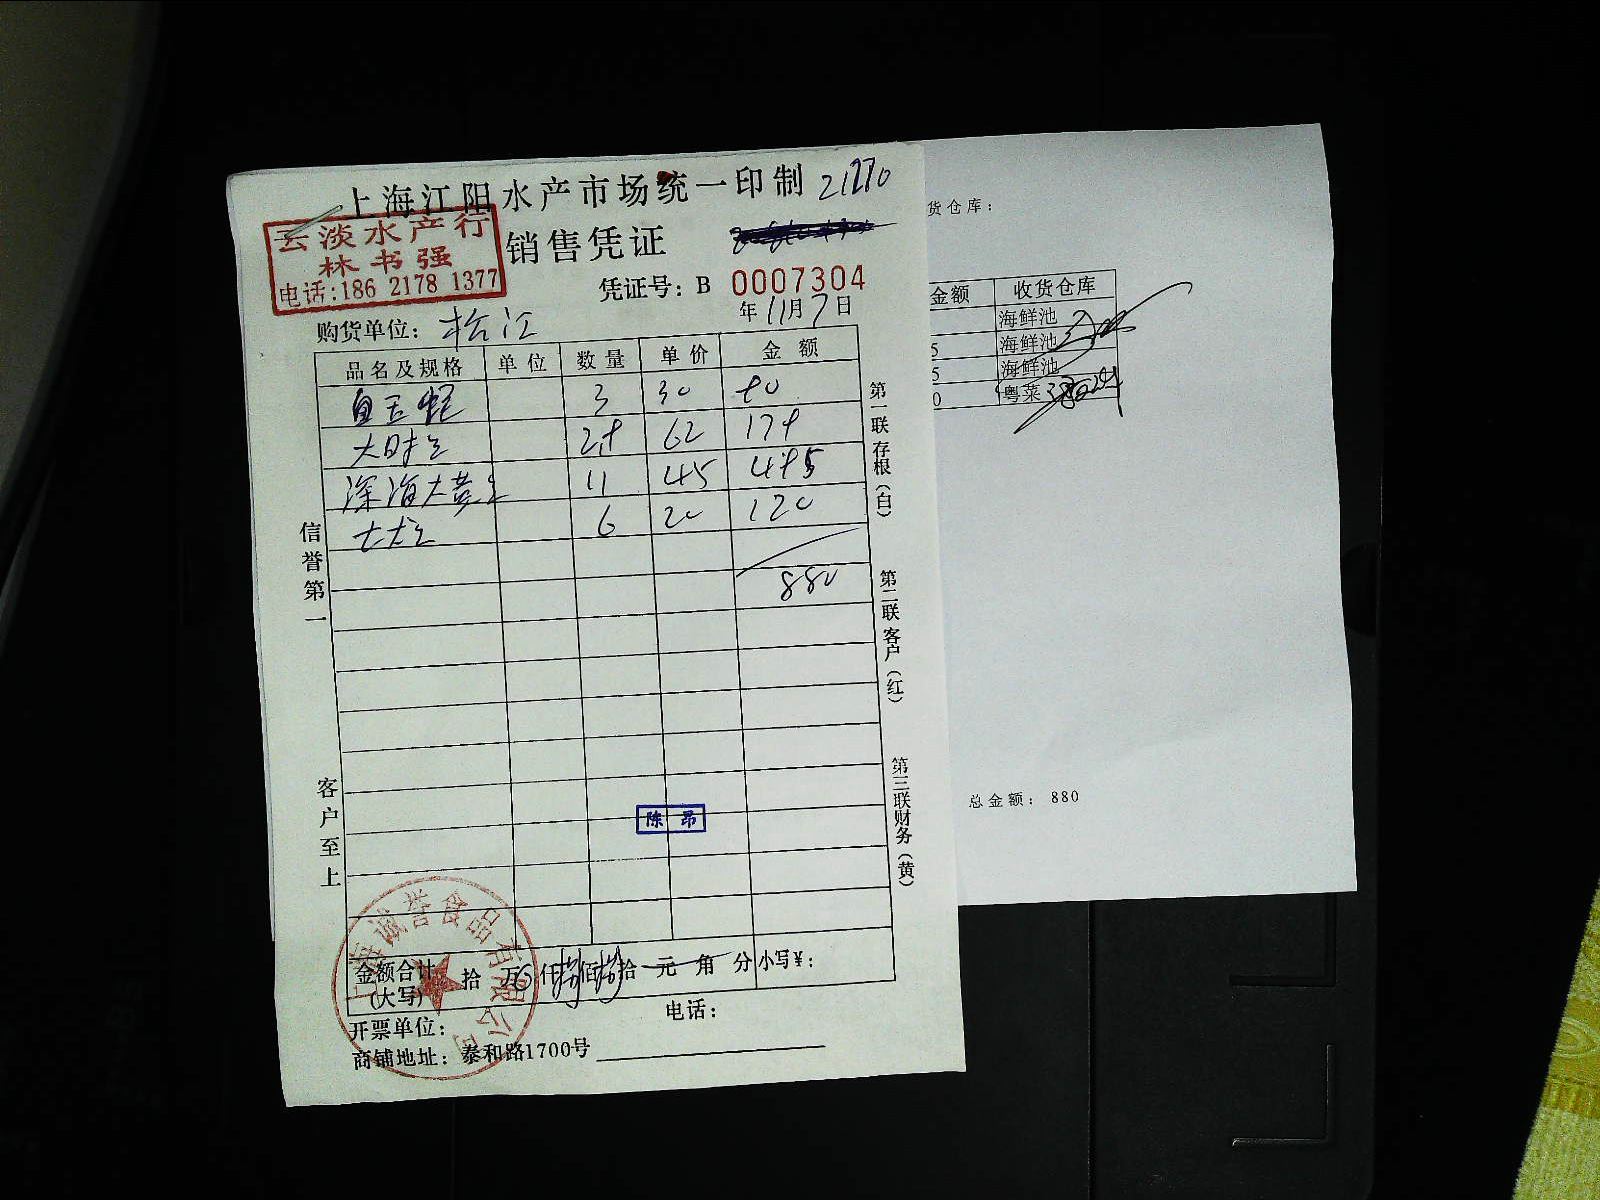 上海江阳水产市场统一印制 21270
云淡水产行
林书强
电话:186 2178 1377
销售凭证
凭证号: B 0007304
年11月7日
购货单位: 松江
品名及规格 单位 数量 单价 金额
3 30
大时 62
深海大黄 11 45 495
6 20 120
880
信誉第一
客户至上
第一联存根(白)
第二联客户(红)
第三联财务(黄)
陈昂
上海诚誉食品有限公司
金额合计(大写) 拾 万 仟捌佰捌拾 元 角 分 小写¥:
开票单位: 电话:
商铺地址: 泰和路1700号
货仓库:
金额 收货仓库
海鲜池
5 海鲜池
5 海鲜池
0 粤菜
总金额: 880